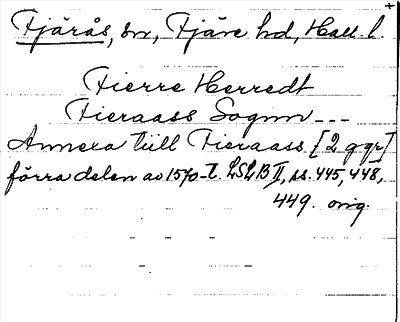 Fjärås, sn, Fjäre hd, Hall. l.
Fierre Herredt
Fieraass Sognn ---
Annexa till Fieraass [2 ggr]
förra delen av 1570-t. LSLB II, ss. 445, 448,
449. orig.